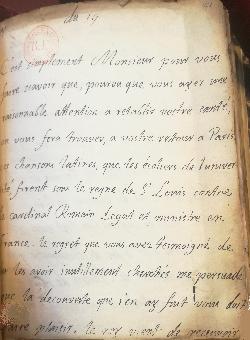 du 19
C'est simplement Monsieur pour vous
faire scavoir que, pourvu que vous ayez une
raisonnable attention a retablir vostre santé,
on vous fera trouver, a vostre retour a Paris,
les chansons latines, que les écoliers de l'univer
firent sous le regne de St Louis contre
le cardinal Romain Legat et ministre en
france. le regret que vous avez temoigné de
les avoir inutillement cherchés me persuade
que la decouverte que j'en ay fait vous doit
faire plaisir. je vien de recevoir